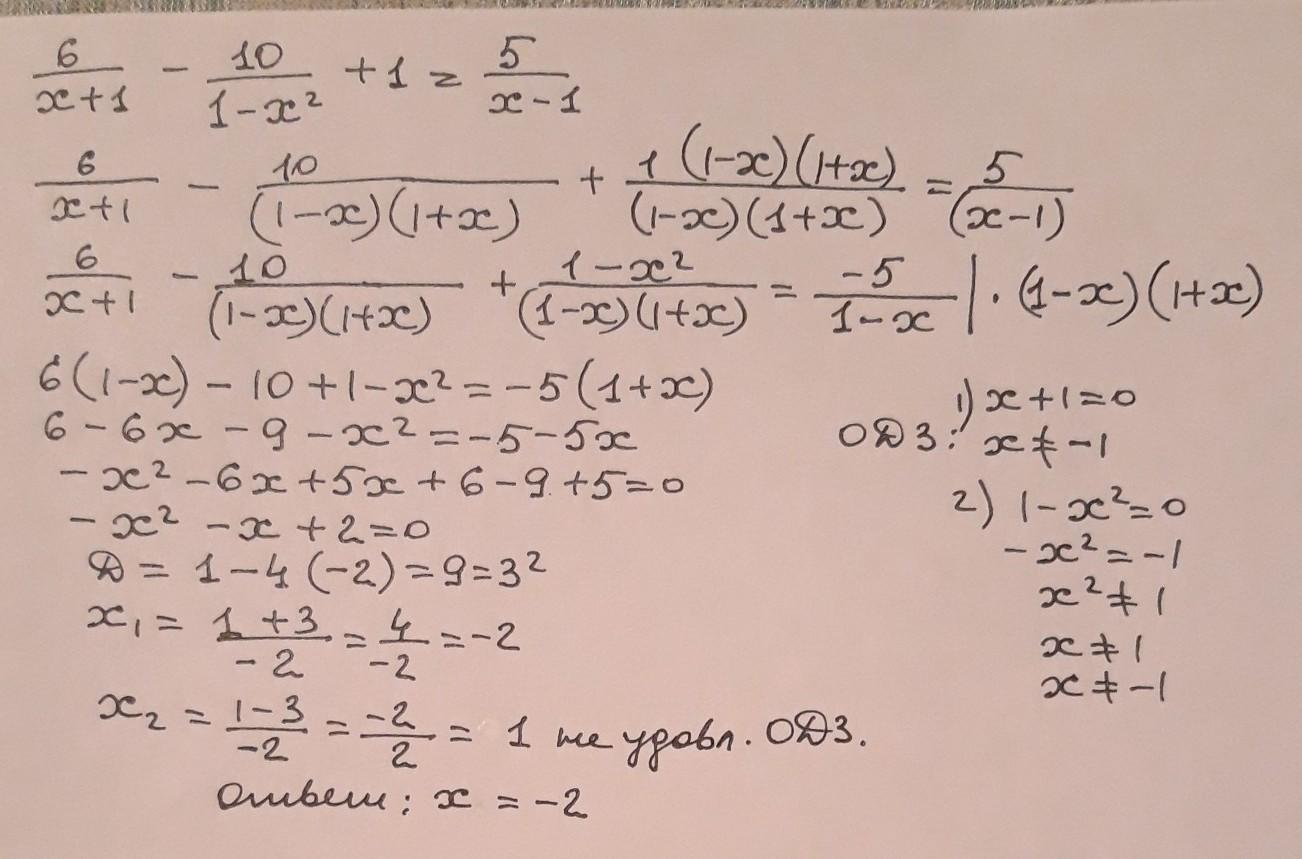 6/(x+1) - 10/(1-x²) + 1 = 5/(x-1)
6/(x+1) - 10/((1-x)(1+x)) + 1(1-x)(1+x)/((1-x)(1+x)) = 5/(x-1)
6/(x+1) - 10/((1-x)(1+x)) + (1-x²)/((1-x)(1+x)) = -5/(1-x) | · (1-x)(1+x)
6(1-x) - 10 + 1 - x² = -5(1+x)
6 - 6x - 9 - x² = -5 - 5x
-x² - 6x + 5x + 6 - 9 + 5 = 0
-x² - x + 2 = 0
D = 1 - 4(-2) = 9 = 3²
x₁ = (1+3)/(-2) = 4/(-2) = -2
x₂ = (1-3)/(-2) = (-2)/2 = 1 не удовл. ОДЗ.
Ответ: x = -2
ОДЗ: 1) x + 1 = 0
x ≠ -1
2) 1 - x² = 0
-x² = -1
x² ≠ 1
x ≠ 1
x ≠ -1